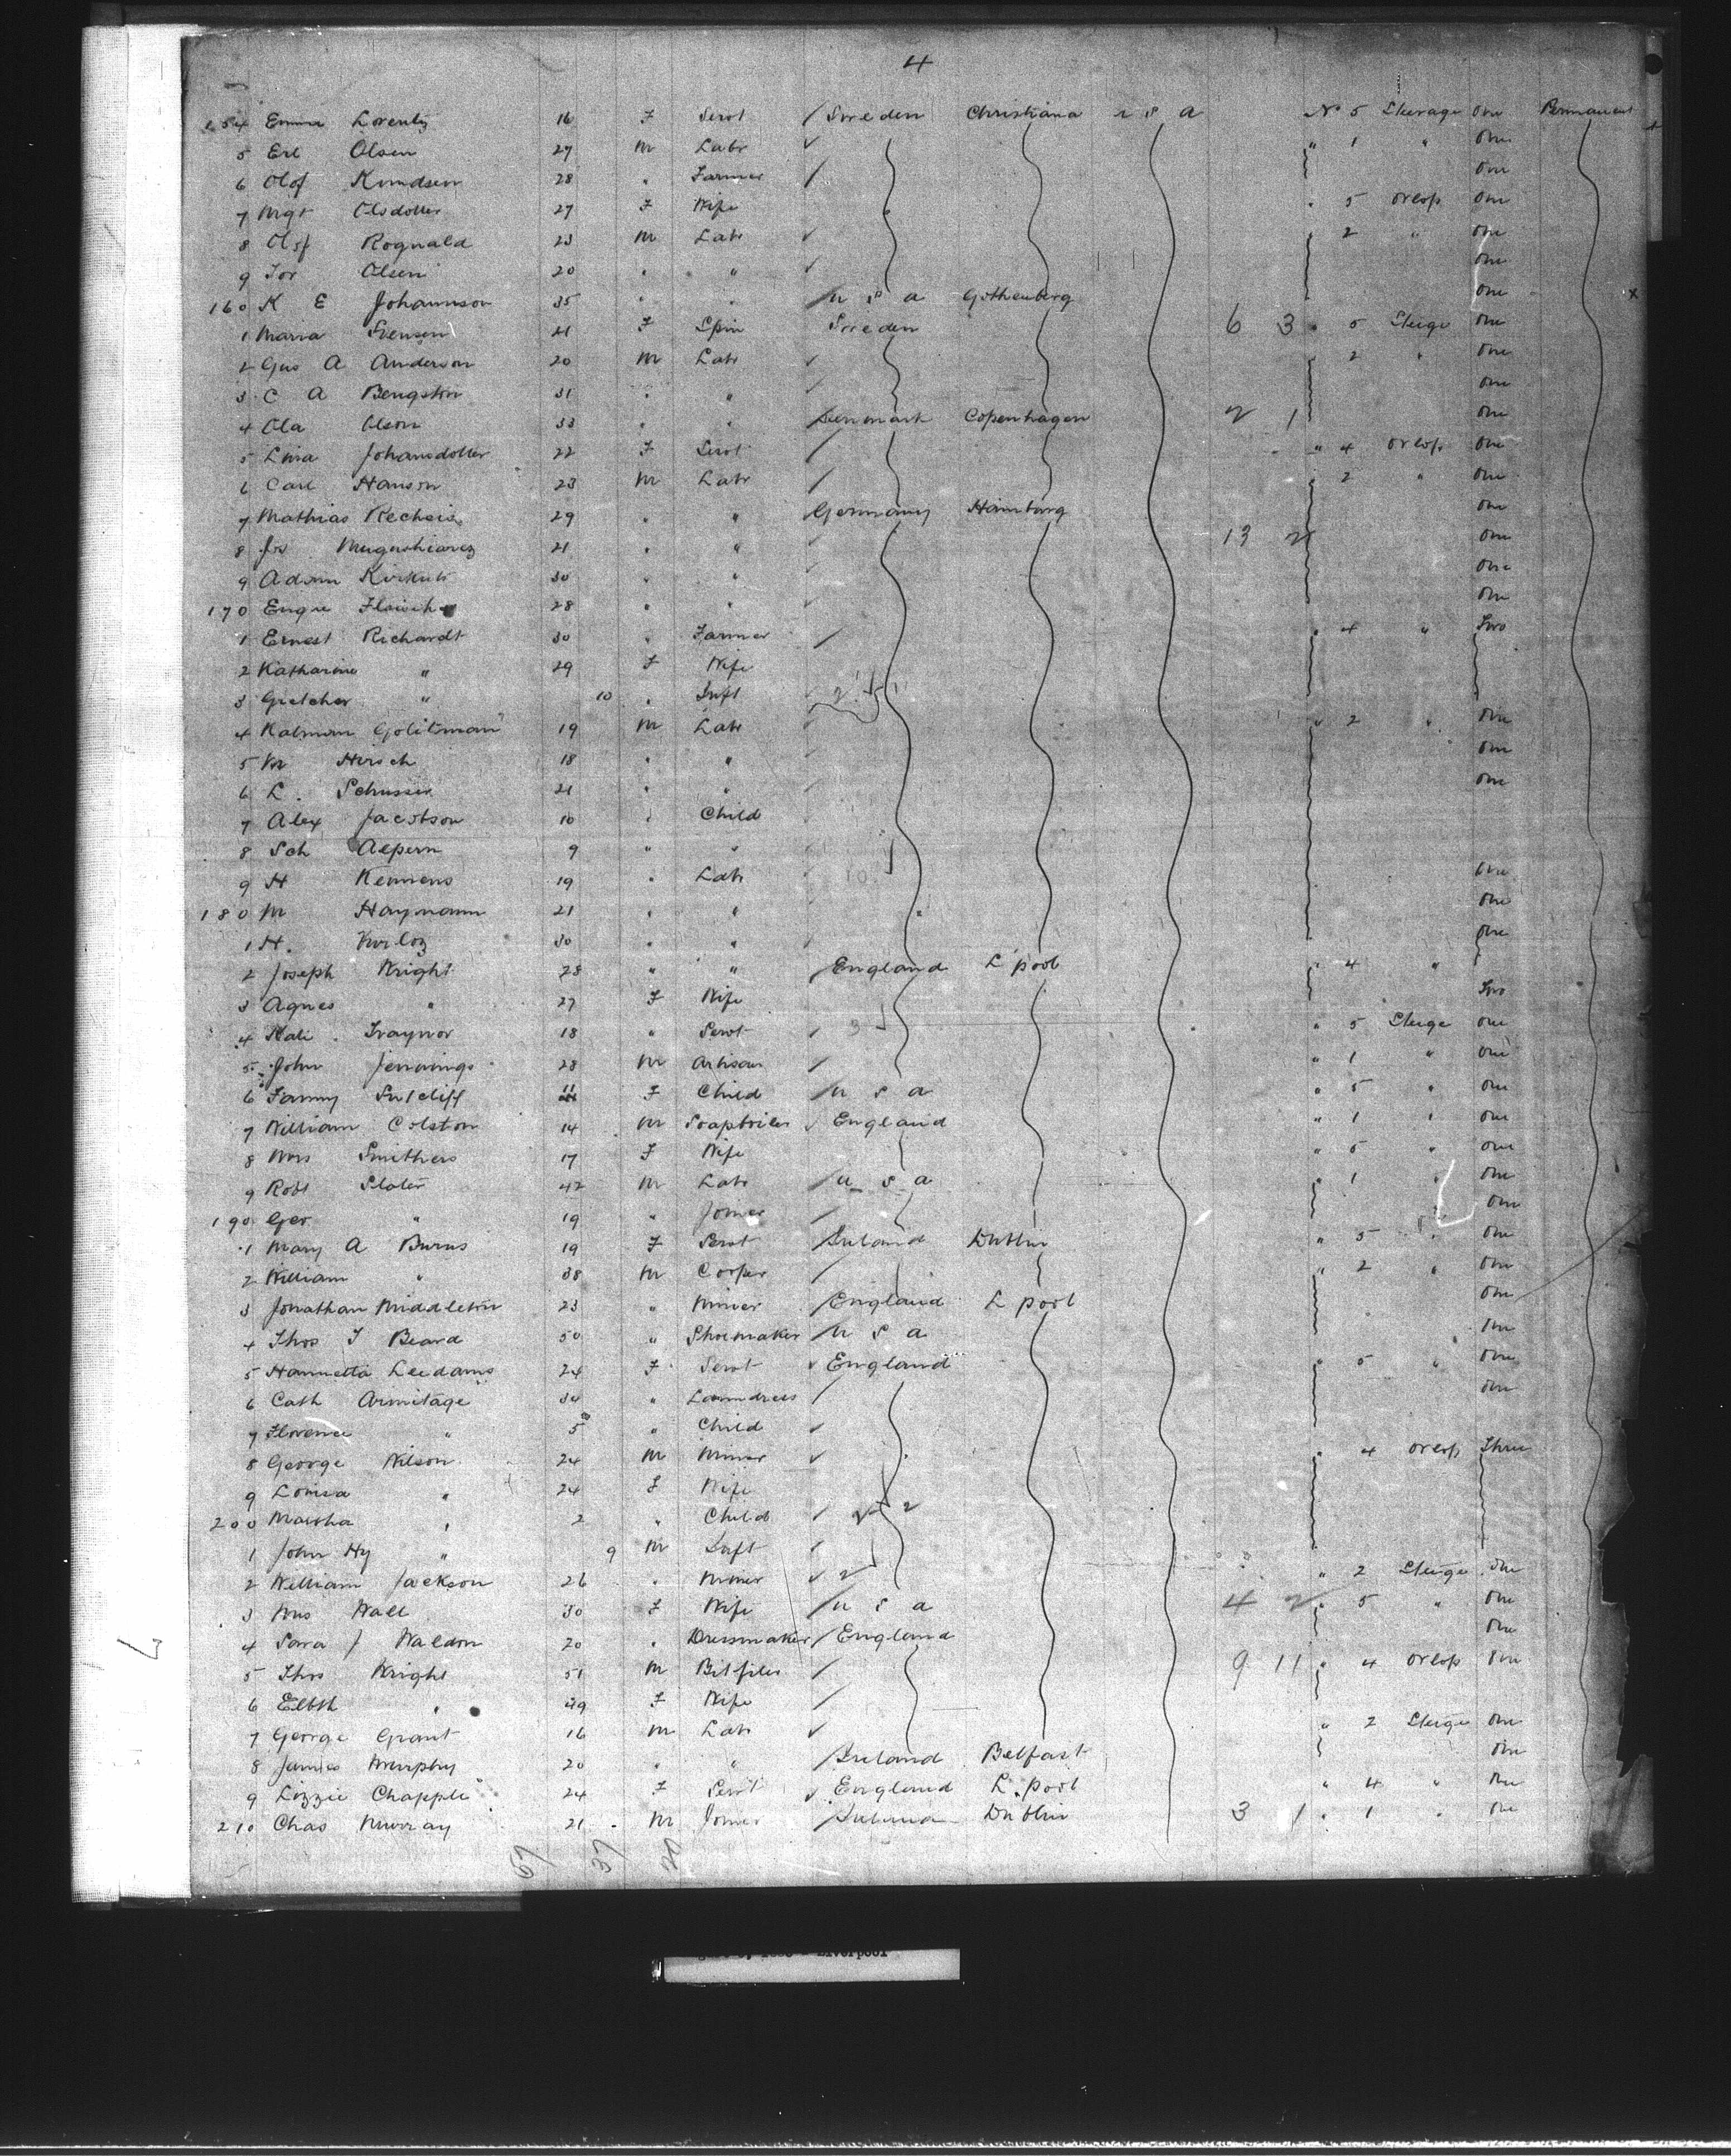 4
154 Emma Lorentz 16 F Servt / Sweden Christiana U S A No 5 Steerage One Permanent
5 Erl Olsen 27 M Labr ✓ " 1 " One
6 Olof Knudsen 28 " Farmer / One
7 Mgt Olsdotter 27 F Wife " 5 Orlop One
8 Olof Rognald 23 M Labr ✓ " 2 " One
9 Tor Olsen 20 " " ✓ One
160 K E Johannson 35 " " / U S A Gothenberg One
1 Maria Svensen 21 F Spin Sweden 6 3 " 5 Steige One
2 Gus A Anderson 20 M Labr ✓ " 2 " One
3 C A Bengston 31 " " ✓ One
4 Ola Olson 33 " " / Denmark Copenhagen 2 1 One
5 Lina Johansdotter 22 F Servt / " 4 Orlop One
6 Carl Hanson 23 M Labr / " 2 " One
7 Mathias 29 " " ✓ Germany Hamburg One
8 21 " " ✓ 13 2 One
9 Adam 30 " " ✓ One
170 28 " " One
1 Ernest Richardt 30 " Farmer / " 4 " Two
2 Katharine " 29 F Wife
3 Gretchen " 10 " Inft ✓
4 Kalman Golitsman 19 M Labr ✓ " 2 " One
5 M Hirsch 18 " " ✓ One
6 L. Schusser 21 " " ✓ One
7 Alex Jacobson 10 " Child
8 Sch Alpern 9 " " ✓
9 H 19 " Labr ✓ 10 One
180 M Haymann 21 " " ✓ One
1 H. 30 " " ✓ One
2 Joseph Wright 28 " " / England L'pool " 4 "
3 Agnes " 27 F Wife Two
4 Kate Traynor 18 " Servt / 3 " 5 Steige One
5 John Jennings 28 M Artisan / " 1 " One
6 Fanny Sutcliff 11 F Child / U S A " 5 " One
7 William Colston 14 M Soapboiler ✓ England " 1 " One
8 Mrs Smithers 17 F Wife " 5 " One
9 Robt Slater 42 M Labr / U S A " 1 " One
190 Geo " 19 " Joiner / One
1 Mary A Burns 19 F Servt / Ireland Dublin " 5 " One
2 William " 38 M Cooper / " 2 " One
3 Jonathan Middleton 23 " Miner / England L pool One
4 Thos J Beard 50 " Shoemaker / U S A One
5 Hannetta Leedams 24 F Servt ✓ England " 5 " One
6 Cath Armitage 30 " Laundress / One
7 Florence " 5 " Child ✓
8 George Wilson 24 M Miner ✓ " 4 Orlop Three
9 Louisa " 24 F Wife
200 Martha " 2 " Child / 2
1 John Hy " 9 M Inft ✓
2 William Jackson 26 " Miner ✓ 2 " 2 Steige One
3 Mrs Wall 30 F Wife / U S A 4 2 " 5 " One
4 Sara J Waldon 20 " Dressmaker / England One
5 Thos Wright 51 M / 9 11 " 4 Orlop One
6 Elbth " 49 F Wife /
7 George Grant 16 M Labr ✓ " 2 Steige One
8 James Murphy 20 " " / Ireland Belfast One
9 Lizzie Chapple 24 F Servt ✓ England L. pool " 4 " One
210 Chas Murray 21 M Joiner / Ireland Dublin 3 1 " 1 " One
67 37 30
Liverpool